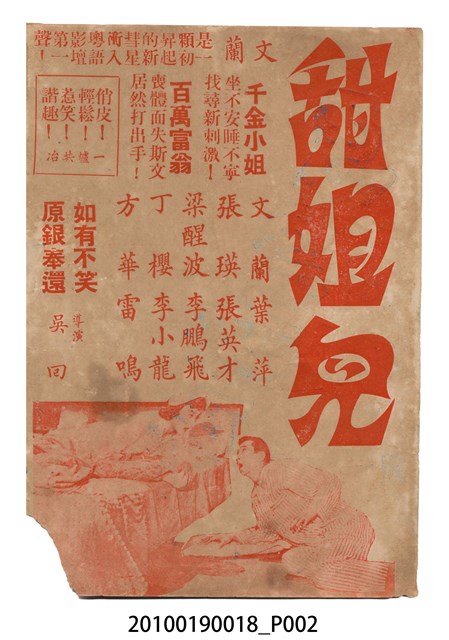 甜姐兒
文蘭
是一顆初昇起的新彗星衝入粵語影壇第一聲！
千金小姐
坐不安睡不寧
找尋新刺激！
百萬富翁
喪體面失斯文
居然打出手！
俏皮！
輕鬆！
惹笑！
諧趣！
一爐共冶
文蘭 葉萍
張瑛 張英才
梁醒波 李鵬飛
丁櫻 李小龍
方華 雷鳴
如有不笑
原銀奉還
導演 吳回
20100190018_P002